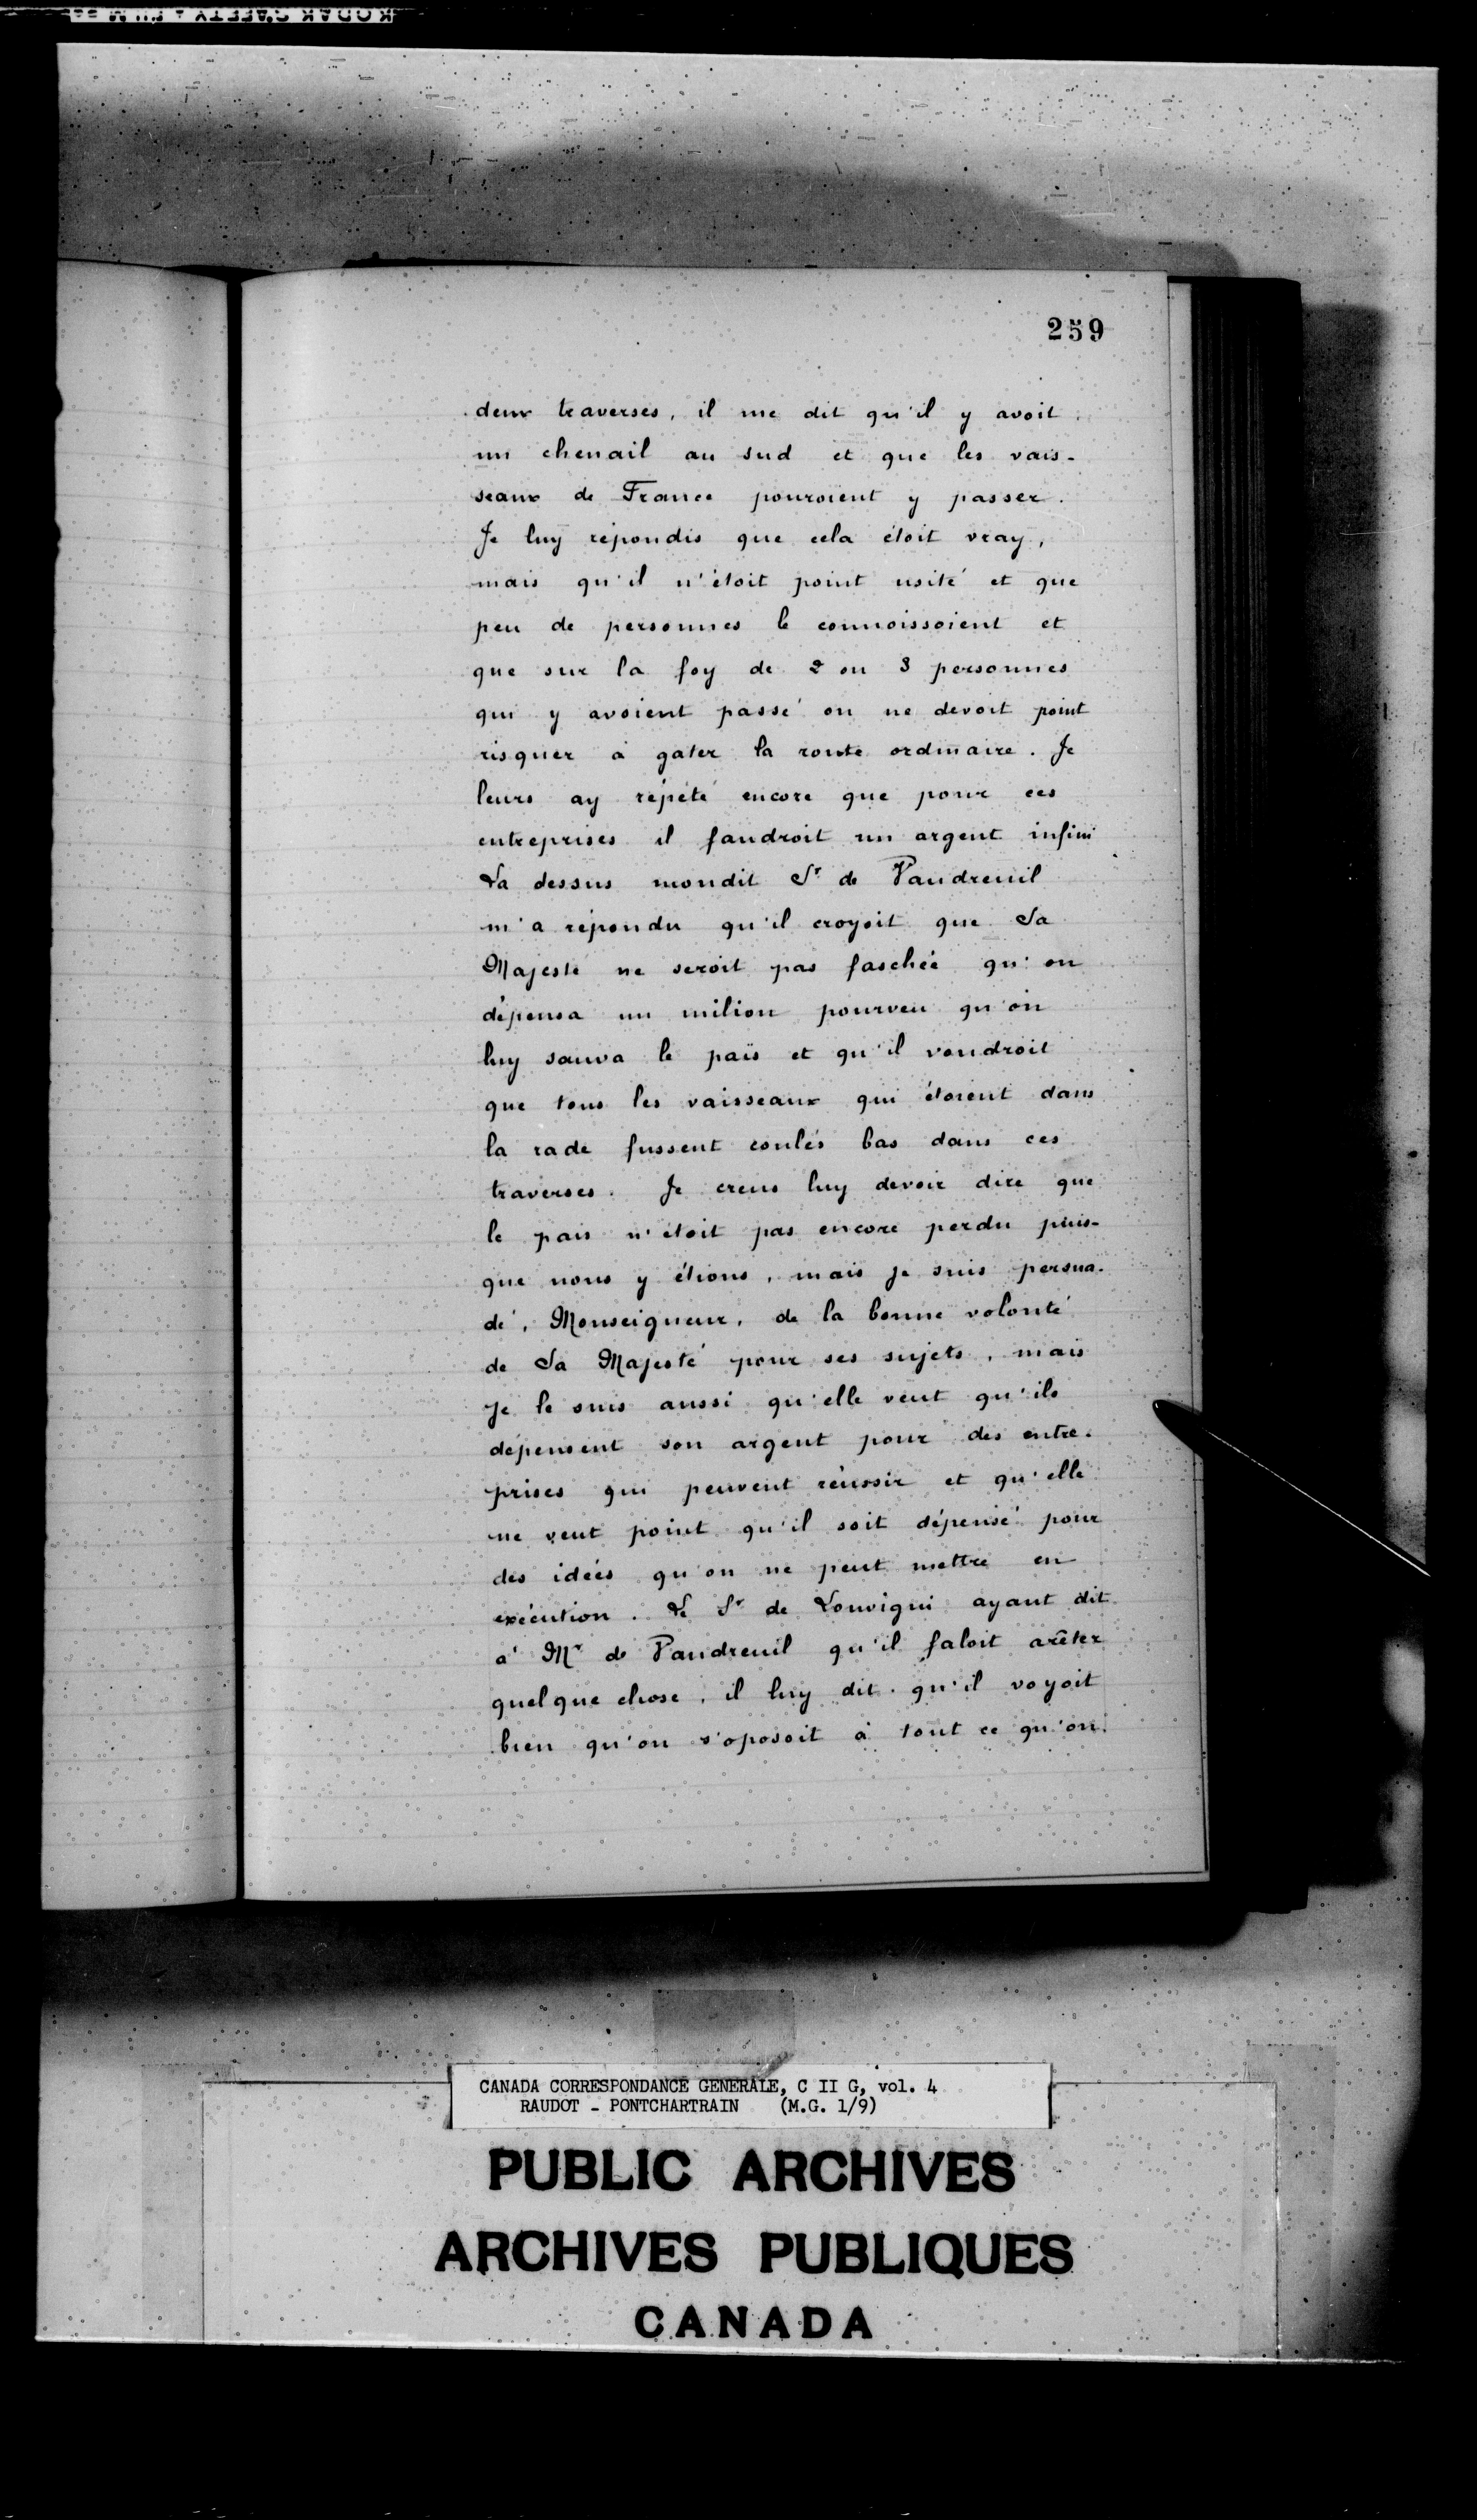 259
deux traverses, il me dit qu'il y avoit
un chenail au sud et que les vais-
seaux de France pouroient y passer.
Je luy répondis que cela étoit vray,
mais qu'il n'étoit point usité et que
peu de personnes le connoissoient et
que sur la foy de 2 ou 3 personnes
qui y avoient passé on ne devoit point
risquer à gater la route ordinaire. Je
leurs ay répété encore que pour ces
entreprises il faudroit un argent infini
La dessus mondit Sr de Vaudreuil
m'a répondu qu'il croyoit que Sa
Majesté ne seroit pas faschée qu'on
dépensa un milion pourveu qu'on
luy sauva le païs et qu'il voudroit
que tous les vaisseaux qui étoient dans
la rade fussent coulés bas dans ces
traverses. Je creus luy devoir dire que
le pais n'étoit pas encore perdu puis-
que nous y étions, mais je suis persua-
dé, Monseigneur, de la bonne volonté
de Sa Majesté pour ses sujets, mais
je le suis aussi qu'elle veut qu'ils
dépensent son argent pour des entre-
prises qui peuvent réussir et qu'elle
ne veut point qu'il soit dépensé pour
des idées qu'on ne peut mettre en
exécution. Le Sr de Louvigni ayant dit
à Mr de Vaudreuil qu'il faloit arêter
quelque chose, il luy dit qu'il voyoit
bien qu'on s'oposoit à tout ce qu'on
CANADA CORRESPONDANCE GENERALE, C II G, vol. 4
RAUDOT - PONTCHARTRAIN (M.G. 1/9)
PUBLIC ARCHIVES
ARCHIVES PUBLIQUES
CANADA